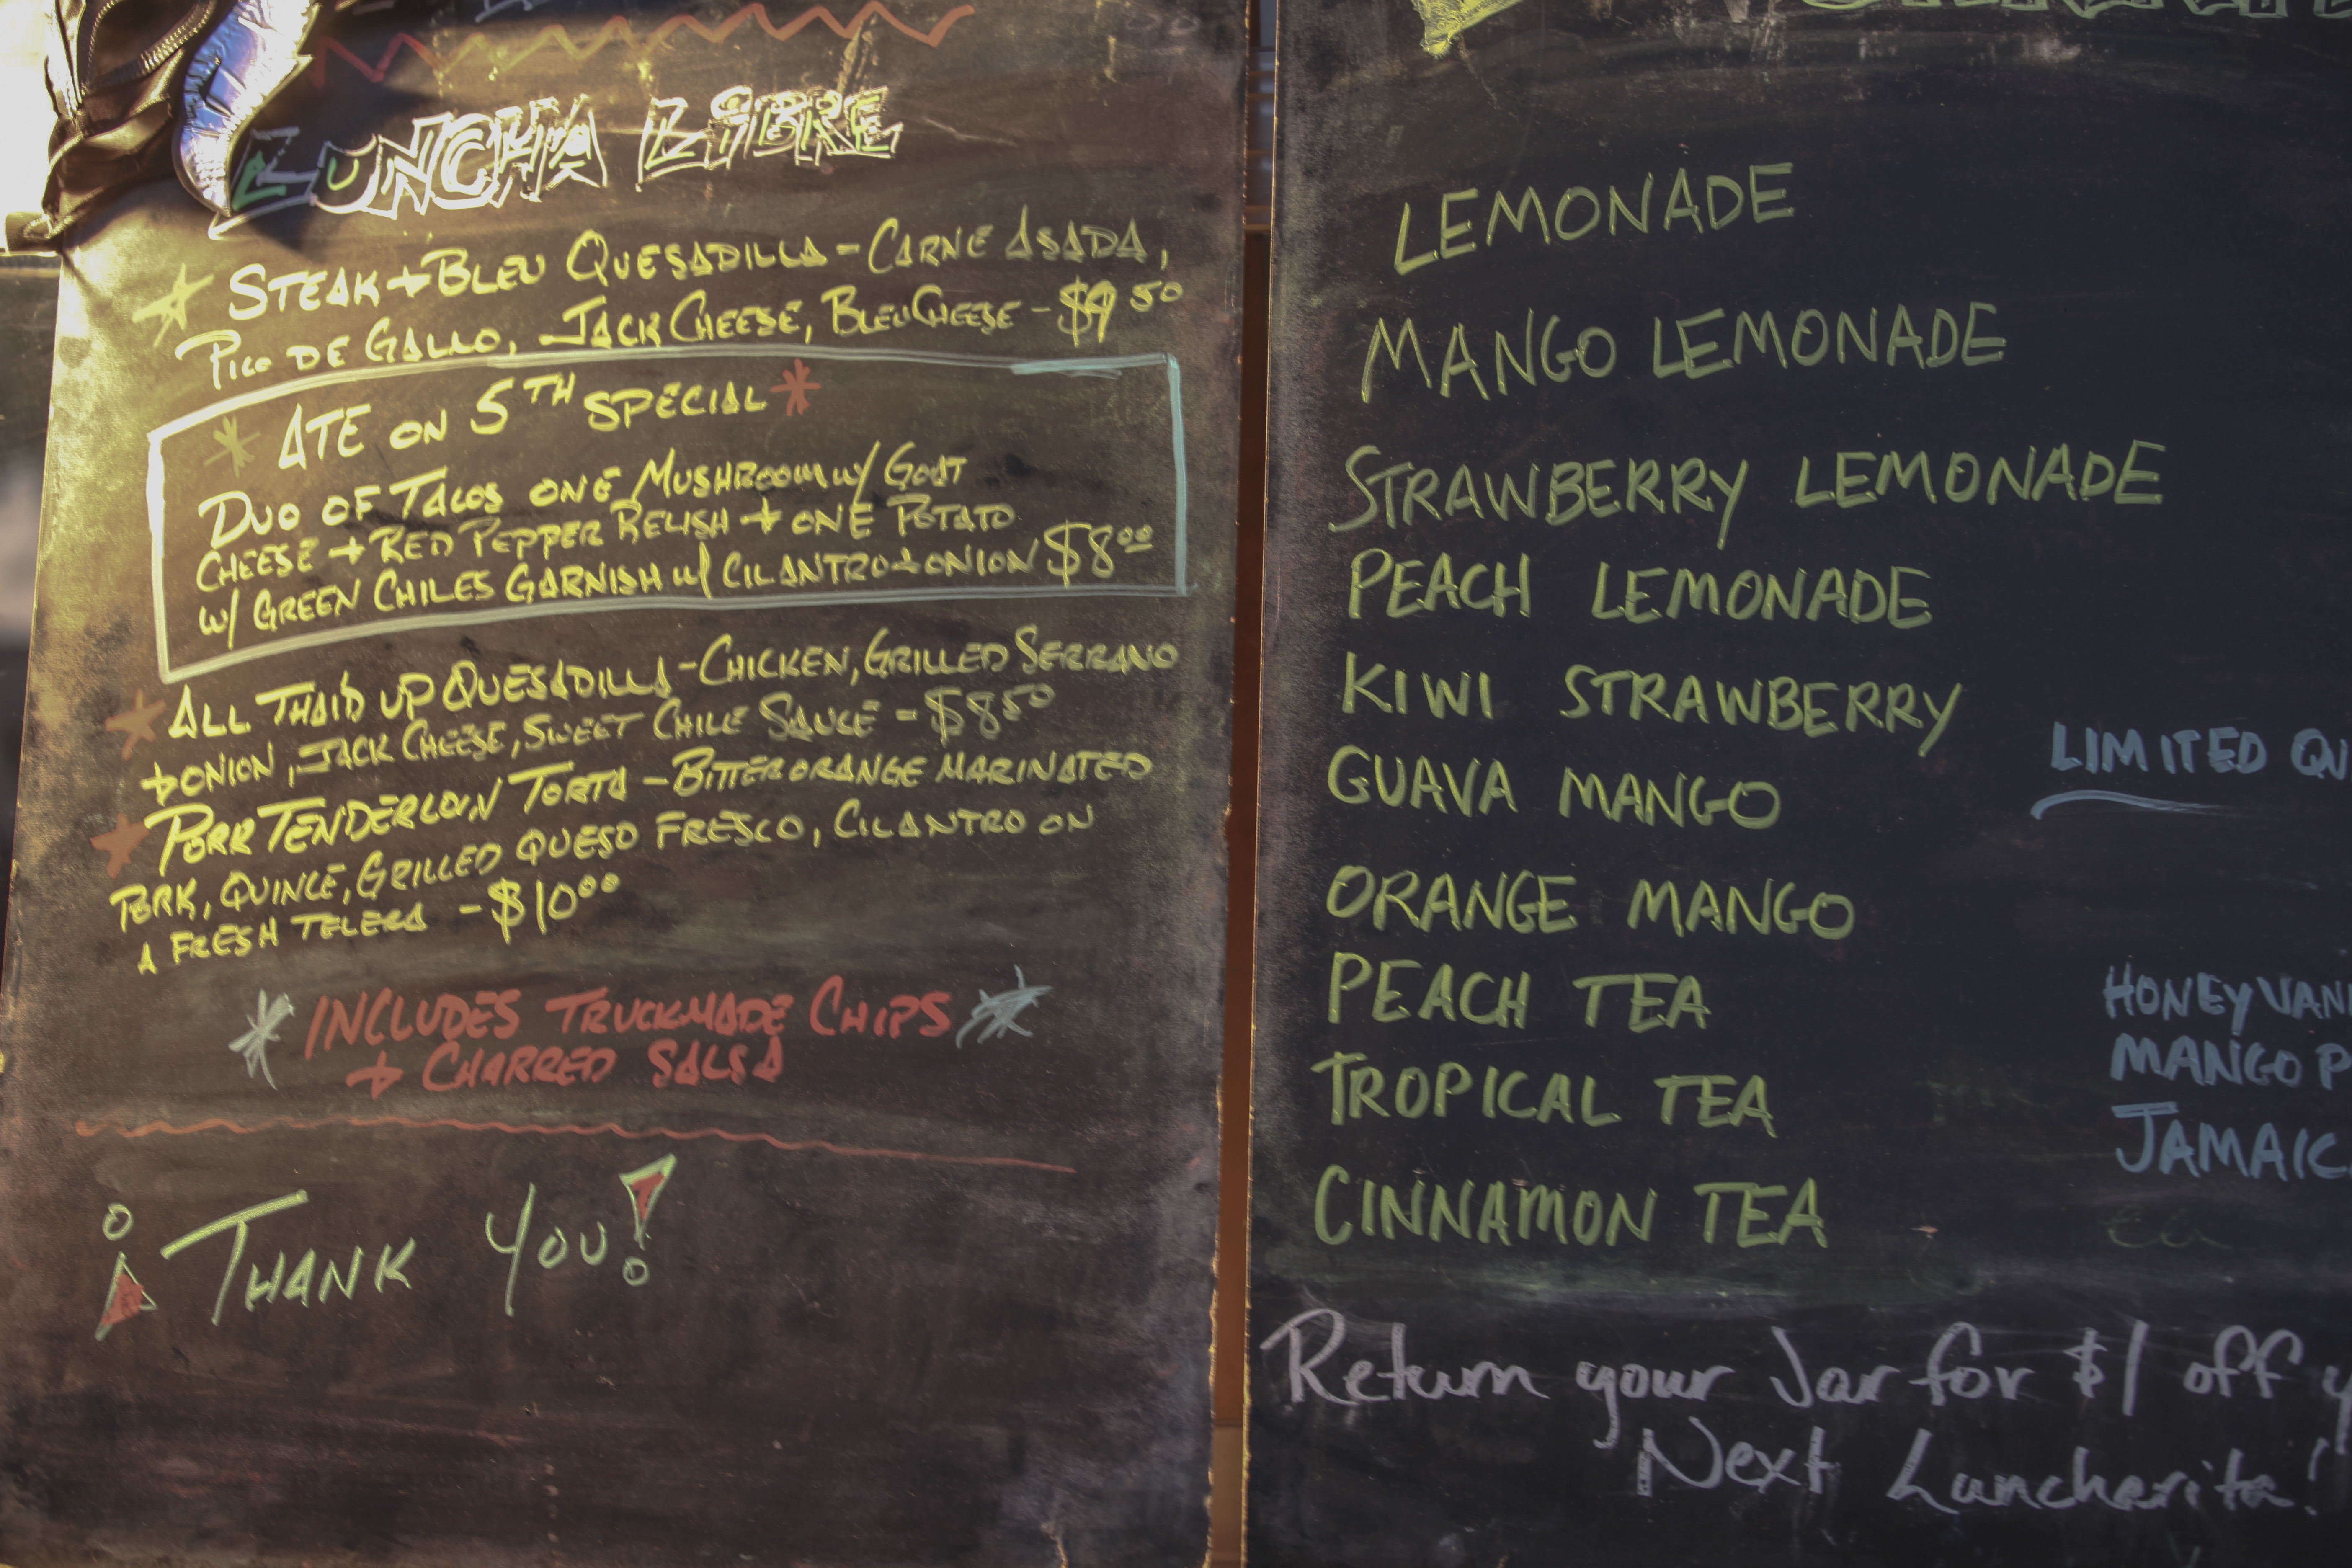 LUNCHA LIBRE
STEAK + BLEU QUESADILLA - CARNE ASADA,
PICO DE GALLO, JACK CHEESE, BLEU CHEESE - $9 50
ATE ON 5TH SPECIAL
DUO OF TACOS ONE MUSHROOM W/ GOAT
CHEESE + RED PEPPER RELISH + ONE POTATO
W/ GREEN CHILES GARNISH W/ CILANTRO + ONION $8 00
ALL THAI'D UP QUESADILLA - CHICKEN, GRILLED SERRANO
+ ONION, JACK CHEESE, SWEET CHILE SAUCE - $8 50
PORK TENDERLOIN TORTA - BITTER ORANGE MARINATED
PORK, QUINCE, GRILLED QUESO FRESCO, CILANTRO ON
A FRESH TELERA - $10 00
INCLUDES TRUCKMADE CHIPS
+ CHARRED SALSA
¡THANK YOU!
LEMONADE
MANGO LEMONADE
STRAWBERRY LEMONADE
PEACH LEMONADE
KIWI STRAWBERRY
GUAVA MANGO
ORANGE MANGO
PEACH TEA
TROPICAL TEA
CINNAMON TEA
LIMITED QU
HONEY VAN
MANGO P
JAMAIC
Return your Jar for $1 off y
Next Luncherita!